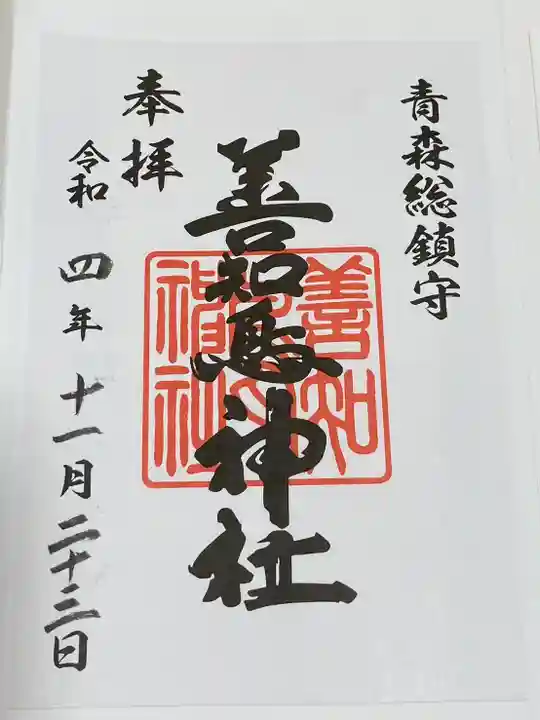 青森総鎮守
善知鳥神社
奉拝
令和四年十一月二十三日
善知
神社